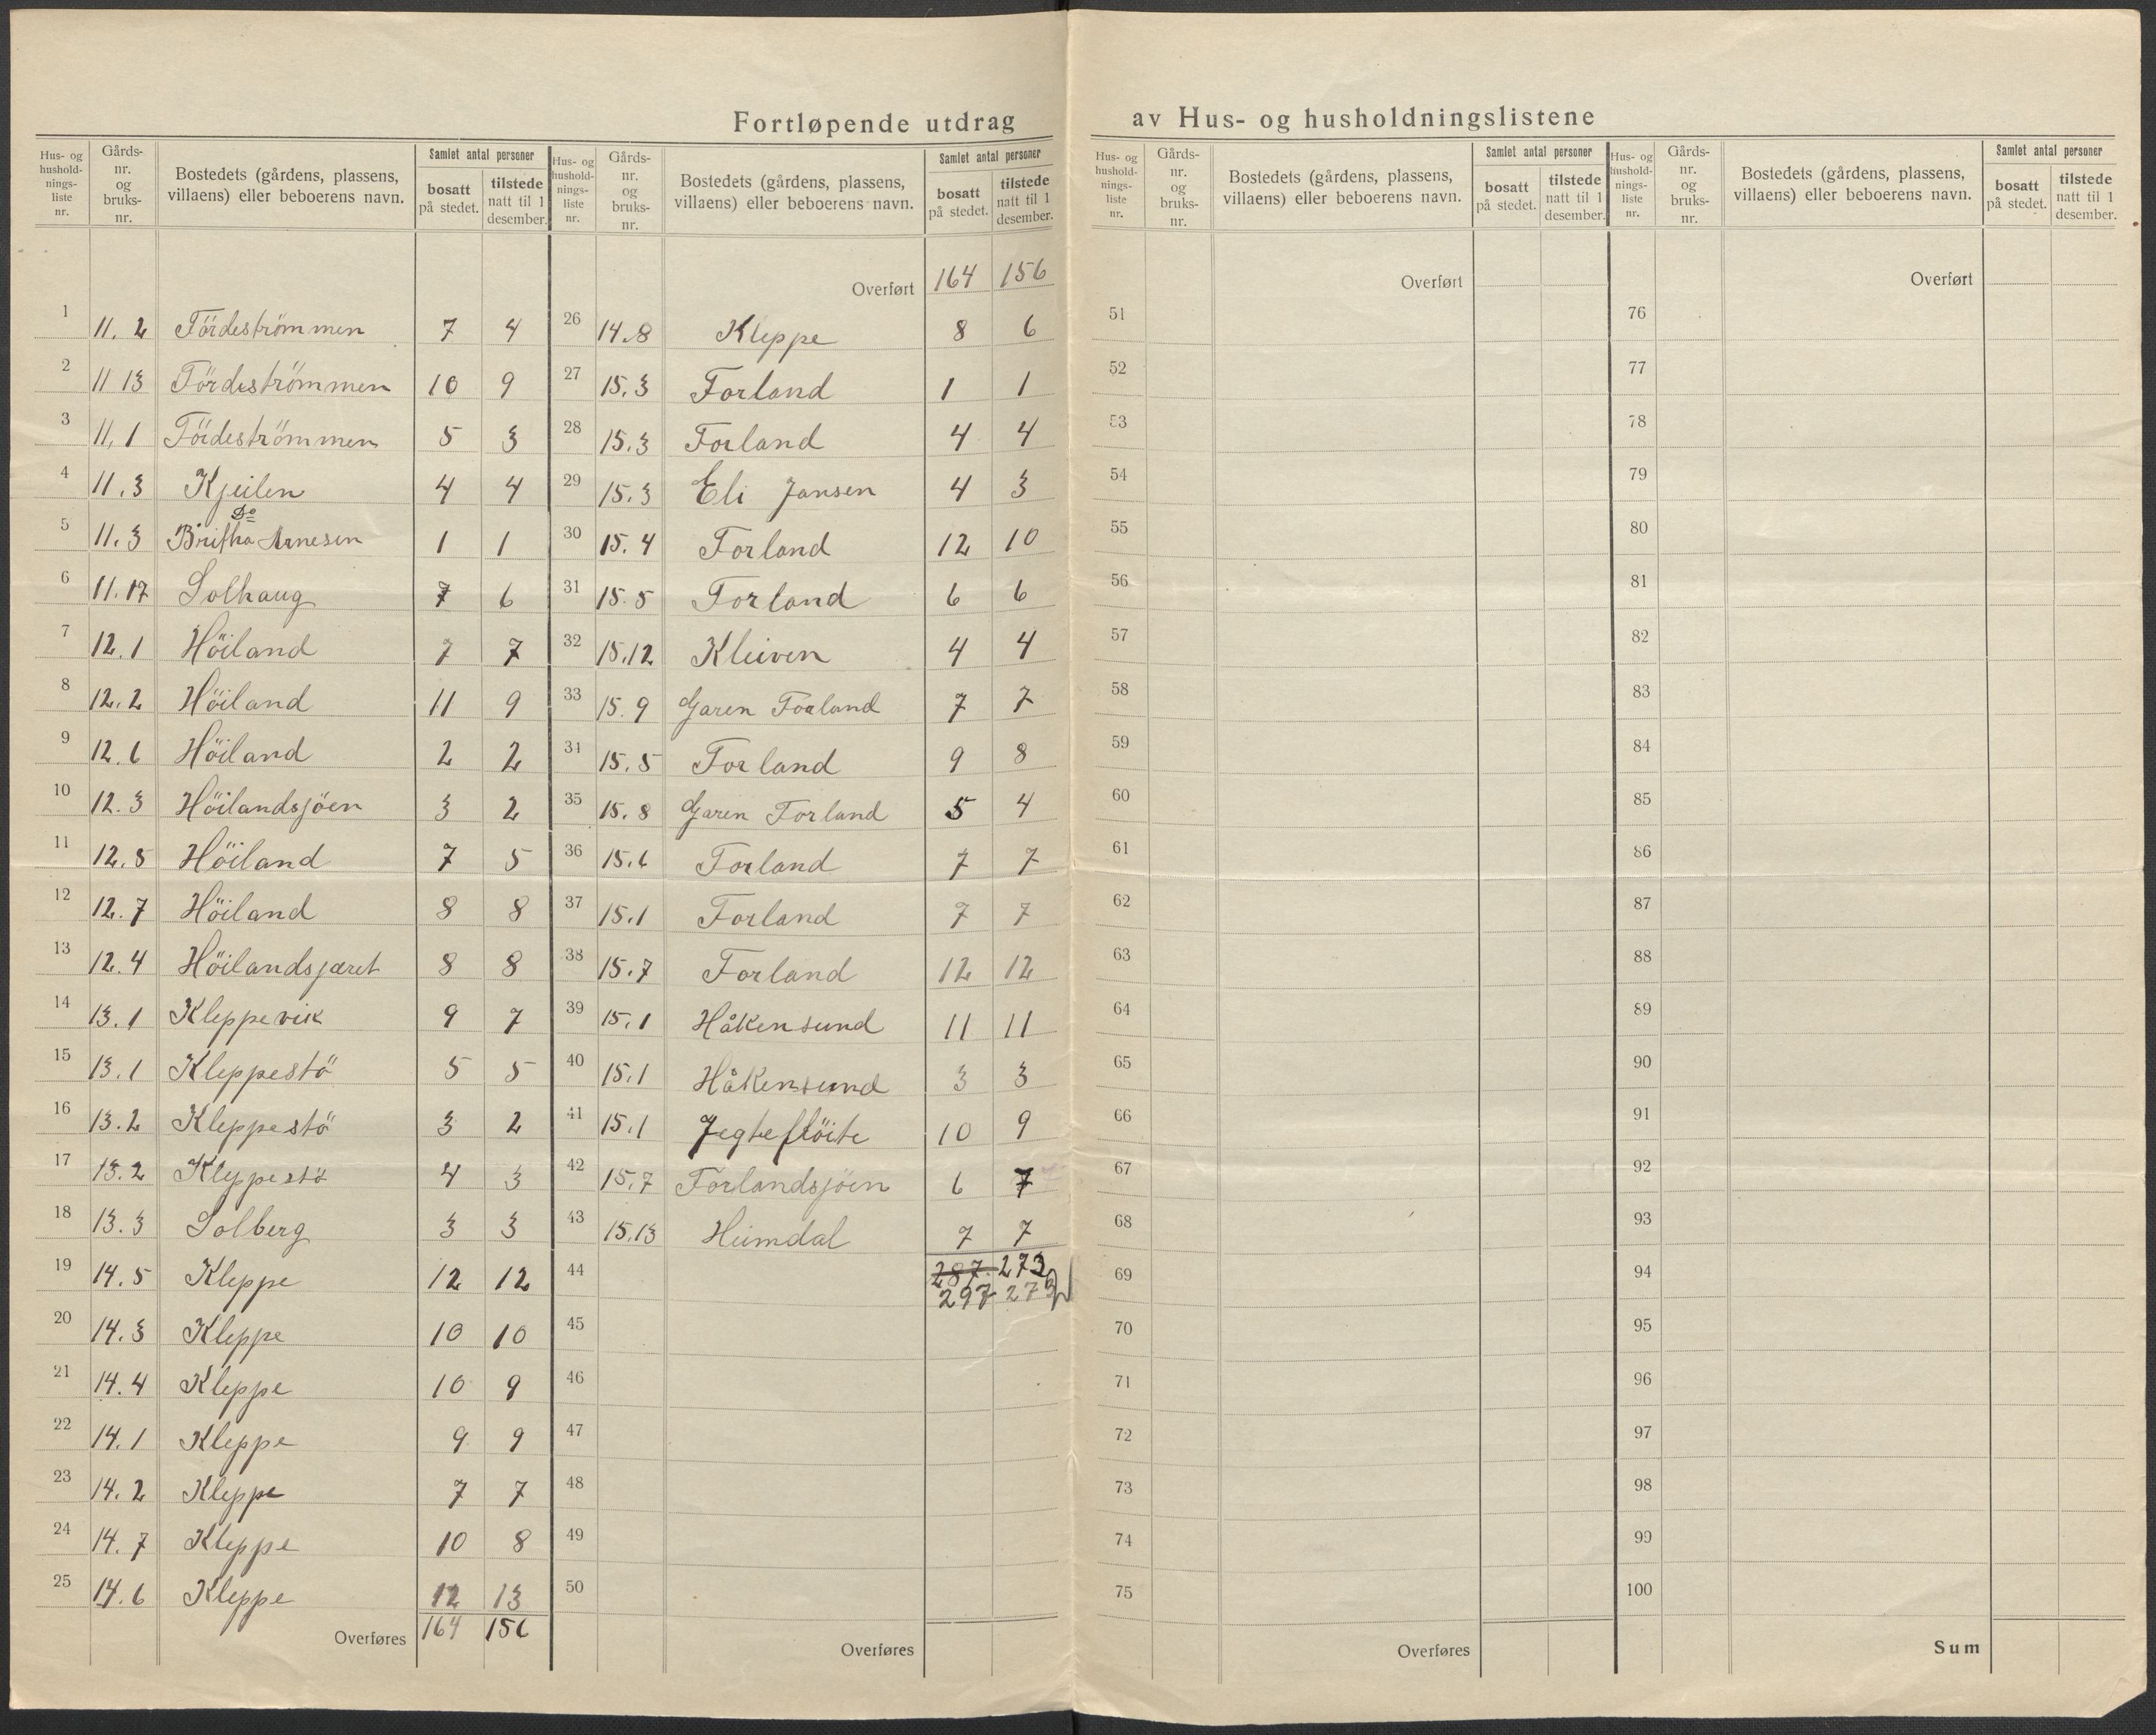 Fortløpende utdrag av Hus- og husholdningslistene
Hus- og hushold-nings-liste nr. | Gårds-nr. og bruks-nr. | Bostedets (gårdens, plassens, villaens) eller beboerens navn. | Samlet antal personer | bosatt på stedet. | tilstede natt til 1 desember.
1 11.2 Fördeströmmen 7 4
2 11 13 Fördeströmmen 10 9
3 11.1 Fördeströmmen 5 3
4 11.3 Kjeilen 4 4
Do
5 11.3 Britha Arnesen 1 1
6 11.17 Solhaug 7 6
7 12.1 Höiland 7 7
8 12.2 Höiland 11 9
9 12.6 Höiland 2 2
10 12.3 Höilandsjöen 3 2
11 12.5 Höiland 7 5
12 12.7 Höiland 8 8
13 12.4 Höilandsjæret 8 8
14 13.1 Kleppevik 9 7
15 13.1 Kleppestö 5 5
16 13.2 Kleppestö 3 2
17 13.2 Kleppestö 4 3
18 13.3 Solberg 3 3
19 14.5 Kleppe 12 12
20 14.3 Kleppe 10 10
21 14.4 Kleppe 10 9
22 14.1 Kleppe 9 9
23 14.2 Kleppe 7 7
24 14.7 Kleppe 10 8
25 14.6 Kleppe 12 13
Overføres 164 156
Hus- og hushold-nings-liste nr. | Gårds-nr. og bruks-nr. | Bostedets (gårdens, plassens, villaens) eller beboerens navn. | Samlet antal personer | bosatt på stedet. | tilstede natt til 1 desember.
Overført 164 156
26 14.8 Kleppe 8 6
27 15.3 Forland 1 1
28 15.3 Forland 4 4
29 15.3 Eli Jansen 4 3
30 15.4 Forland 12 10
31 15.5 Forland 6 6
32 15.12 Kleiven 4 4
33 15.9 Garen Forland 7 7
34 15.5 Forland 9 8
35 15.8 Garen Forland 5 4
36 15.6 Forland 7 7
37 15.1 Forland 7 7
38 15.7 Forland 12 12
39 15.1 Håkensund 11 11
40 15.1 Håkensund 3 3
41 15.1 Jegteflöite 10 9
42 15.7 Forlandsjöen 6 7
43 15.13 Heimdal 7 7
44 287 273
297 273
45
46
47
48
49
50
Overføres
Hus- og hushold-nings-liste nr. | Gårds-nr. og bruks-nr. | Bostedets (gårdens, plassens, villaens) eller beboerens navn. | Samlet antal personer | bosatt på stedet. | tilstede natt til 1 desember.
Overført
51
52
53
54
55
56
57
58
59
60
61
62
63
64
65
66
67
68
69
70
71
72
73
74
75
Overføres
Hus- og hushold-nings-liste nr. | Gårds-nr. og bruks-nr. | Bostedets (gårdens, plassens, villaens) eller beboerens navn. | Samlet antal personer | bosatt på stedet. | tilstede natt til 1 desember.
Overført
76
77
78
79
80
81
82
83
84
85
86
87
88
89
90
91
92
93
94
95
96
97
98
99
100
Sum